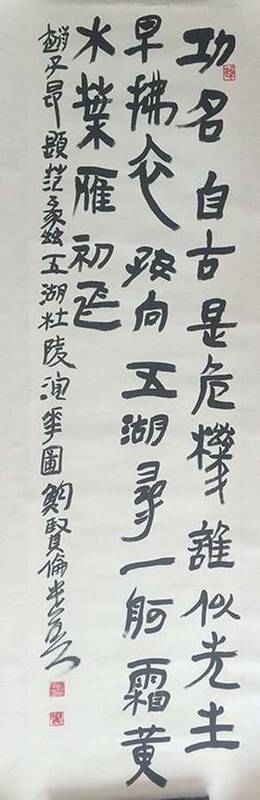 功名自古是危機誰似先生
早拂衣好向五湖尋一舸霜黃
木葉雁初飛
趙子昂題范蠡五湖杜陵浣花圖鮑賢倫書